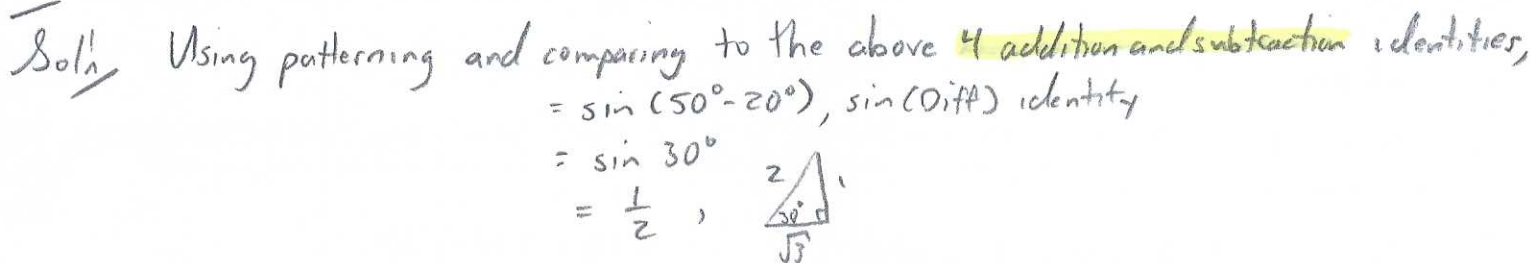 Sol'n Using patterning and comparing to the above 4 addition and subtraction identities,
= sin (50°-20°), sin(Diff) identity
= sin 30°
= 1/2 , 2 1 30° √3